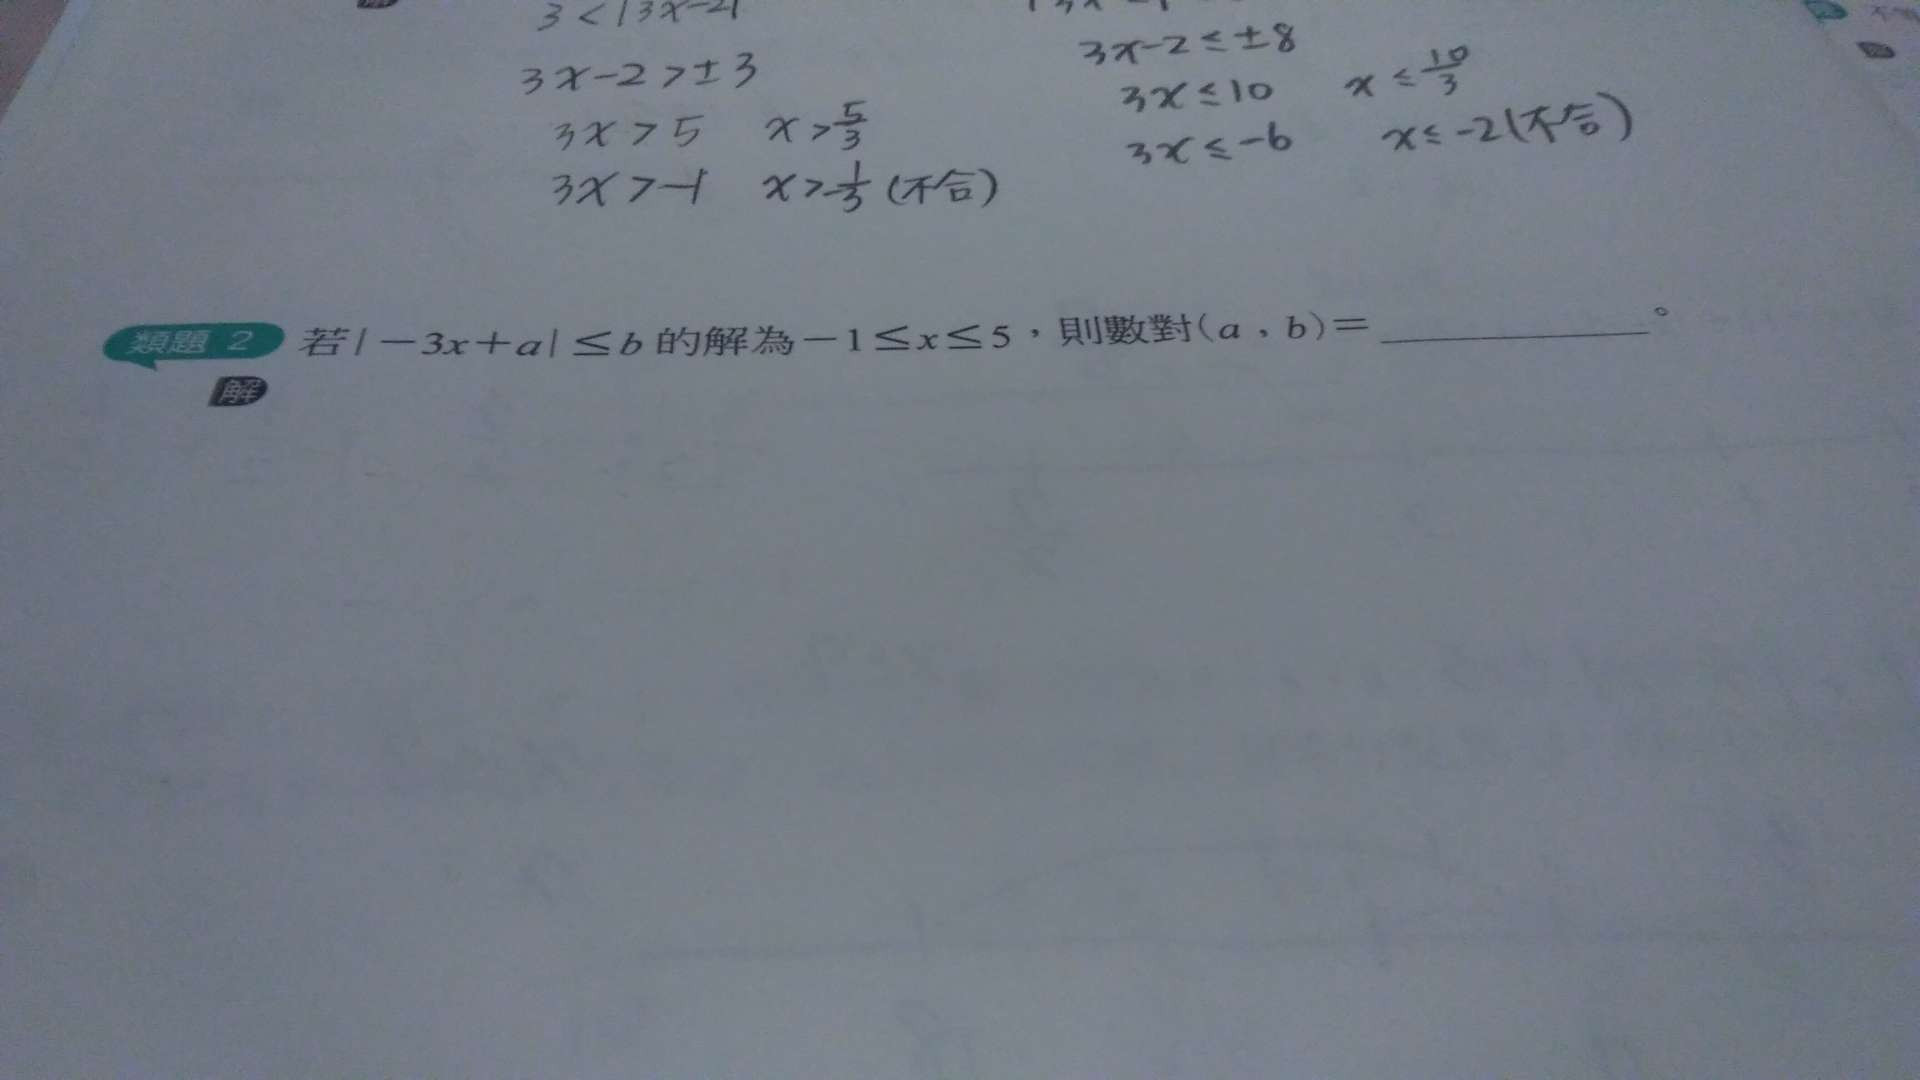 3<|3x-2|
3x-2>±3
3x>5 x>5/3
3x>-1 x>-1/3(不合)
3x-2≤±8
3x≤10 x≤10/3
3x≤-6 x≤-2(不合)
類題 2 若|-3x+a|≤b的解為-1≤x≤5,則數對(a,b)=__________。
解